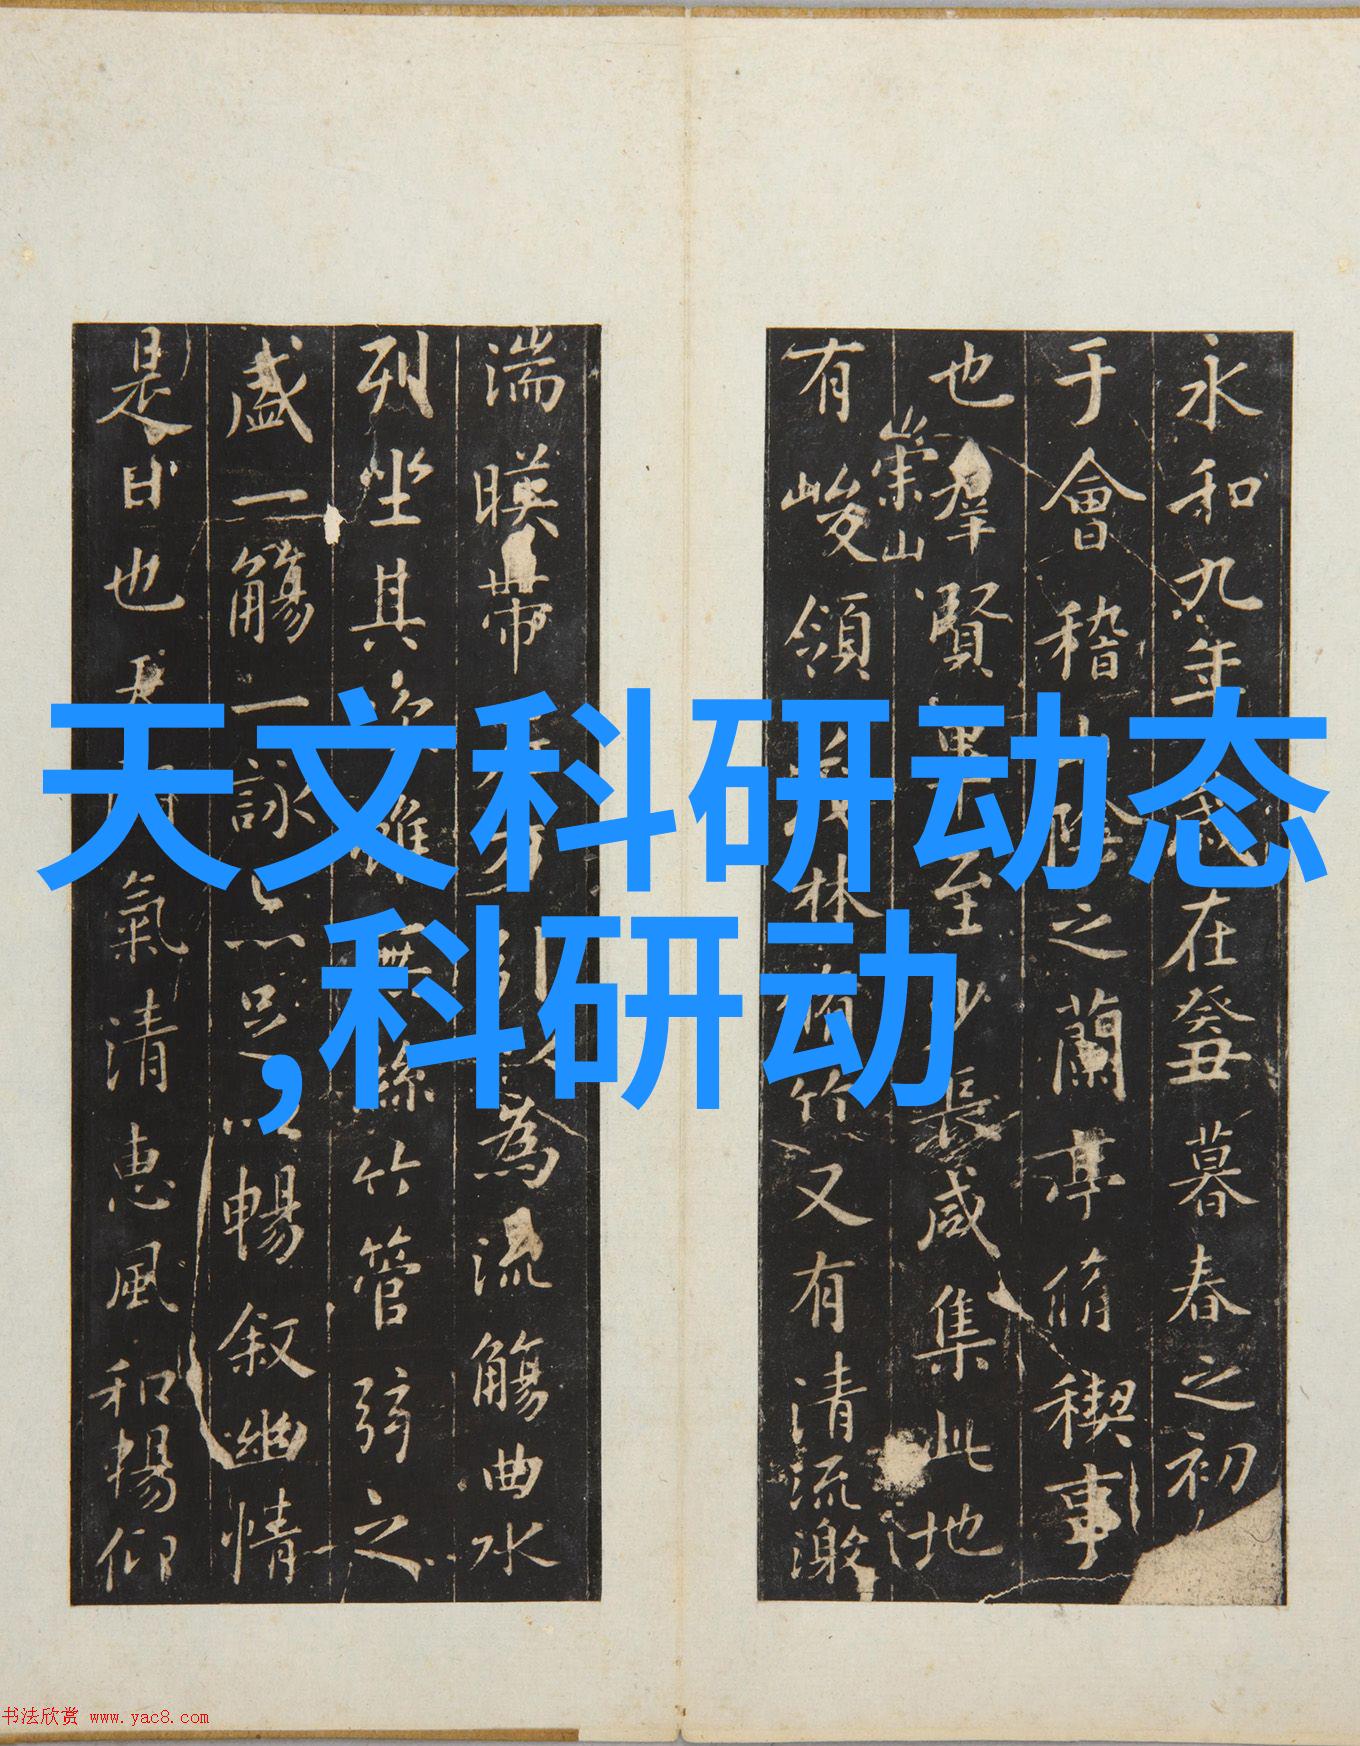 天文科研动态
,科研动
永和九年歲在癸丑暮春之初
于會稽山陰之蘭亭脩稧事
也羣賢畢至少長咸集此地
崇山
有峻領茂林脩竹又有清流激
湍暎帶左右引以為流觴曲水
列坐其次雖無絲竹管弦之
盛一觴一詠亦足以暢敘幽情
是日也天朗氣清惠風和暢仰
书法欣赏 www.yac8.com